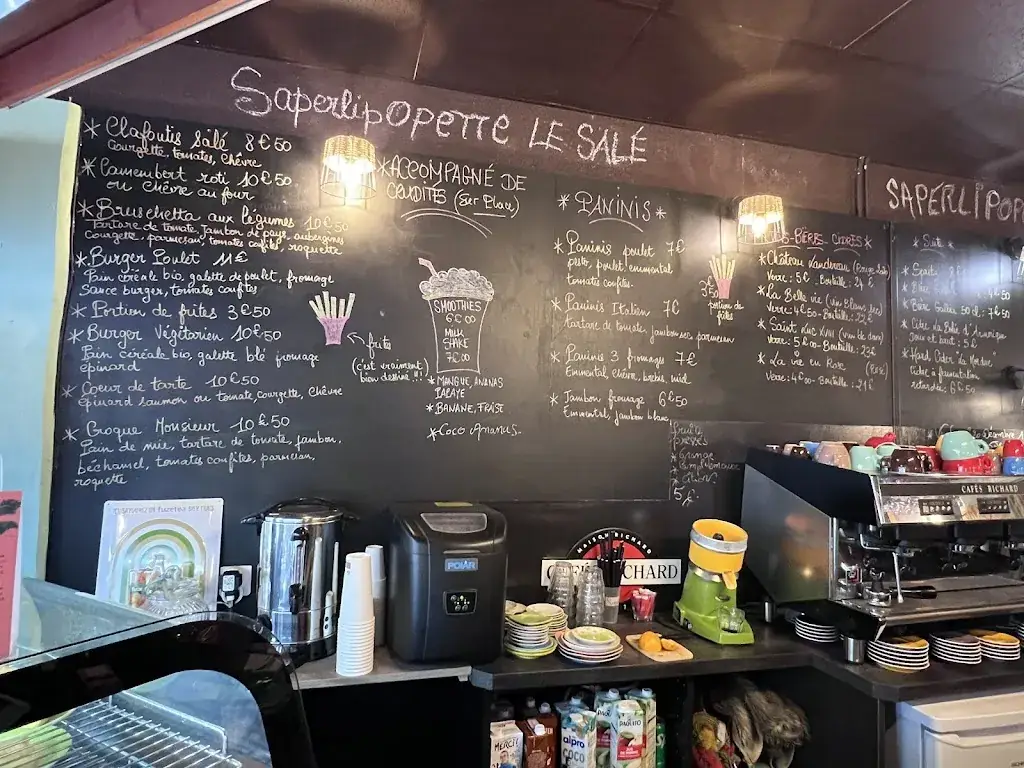 Saperlipopette LE SALÉ
* Clafoutis Salé 8€50
Courgette, tomates, chèvre
* Camembert roti 10€50
ou Chèvre au four
* Bruschetta aux légumes 10€50
Tartare de tomate, Jambon de pays, aubergines
Courgette, parmesan, tomates confites, roquette
* Burger Poulet 11€
Pain céréale bio, galette de poulet, fromage
Sauce burger, tomates confites
* Portion de frites 3€50
* Burger Végétarien 10€50
Pain céréale bio, galette blé fromage
épinard
* Coeur de tarte 10€50
épinard saumon ou tomate, courgette, chèvre
* Croque Monsieur 10€50
Pain de mie, tartare de tomate, jambon,
béchamel, tomates confites, parmesan,
roquette
* ACCOMPAGNÉ DE
CRUDITÉS (Sur Place)
frites
(c'est vraiment
bien dessiné !!!)
SMOOTHIES
6€00
MILK
SHAKE
7€00
* MANGUE, ANANAS
PAPAYE
* BANANE, FRAISE
* Coco Ananas
* PANINIS *
* Paninis poulet 7€
pesto, poulet, emmental
tomates confites.
* Paninis Italien 7€
tartare de tomate, jambon sec, parmesan
* Paninis 3 fromages 7€
Emmental, chèvre, brebis, miel
* Jambon fromage 6€50
Emmental, jambon blanc
3€50
portion de
frites
fruits
pressés
* Orange
* Pamplemousse
* Citron
5€
BIÈRES CIDRES *
* Château
Verre : 5€ - Bouteille : 24€
* La Belle vie (vin blanc sec)
Verre : 4€50 - Bouteille : 22€
* Saint
Verre : 5€00 - Bouteille : 23€
* La vie en Rose (Rosé)
Verre : 4€00 - Bouteille : 21€
SAPERLIPOP
* Suite *
* Spritz
* Cidre
* Hard Cider
Cidre à fermentation
retardée 6€50
POLAR
MAISON RICHARD
CAFÉS RICHARD
CAFÉS RICHARD
MERCI
alpro
COCO